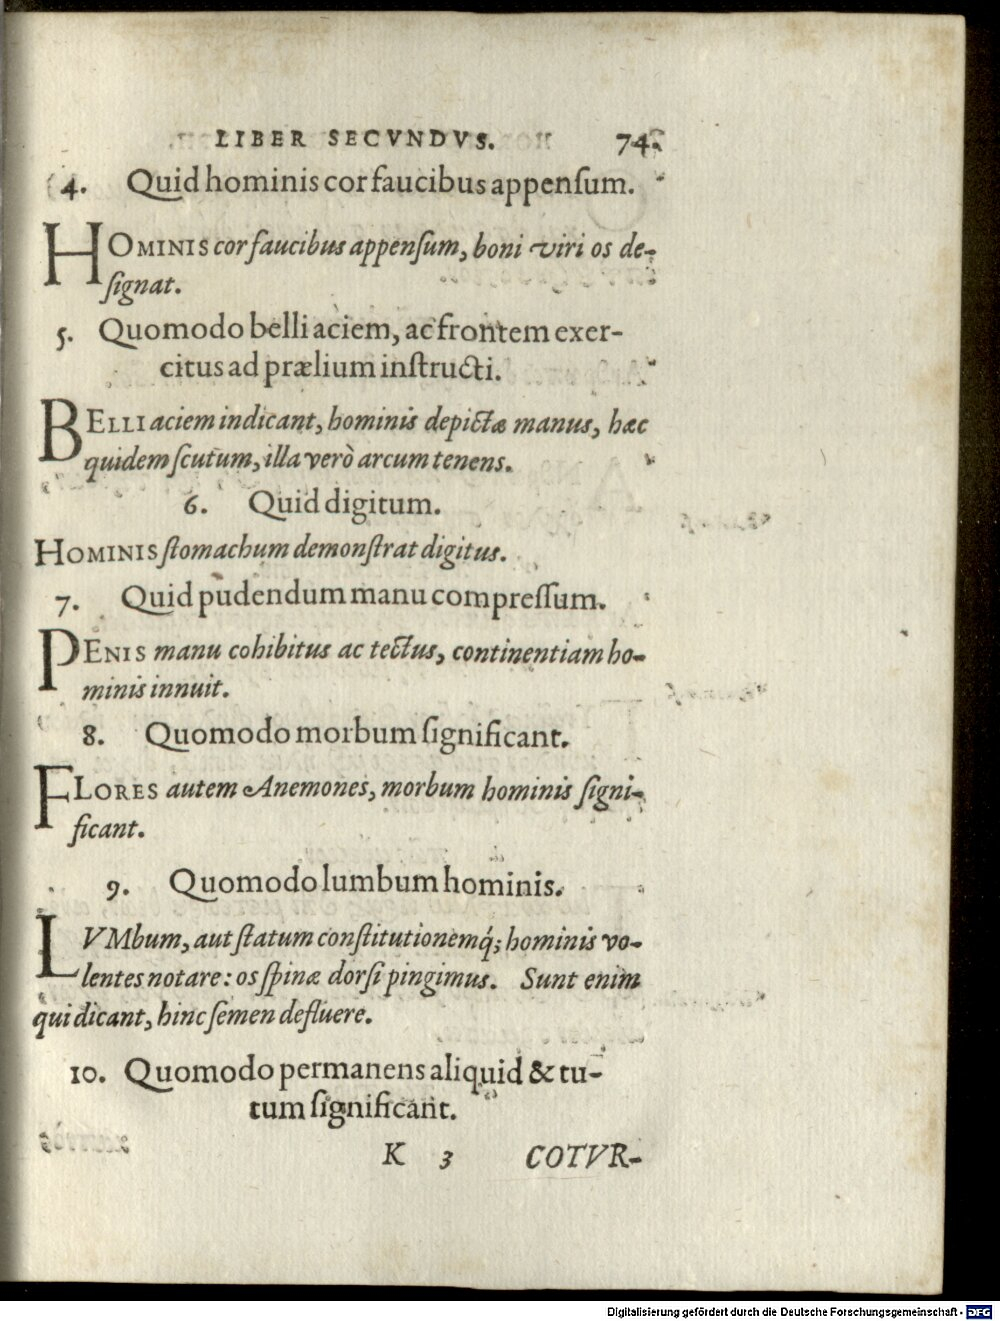 LIBER SECVNDVS. 74.
4. Quid hominis cor faucibus appenſum.
HOMINIS cor faucibus appenſum, boni viri os de-
ſignat.
5. Quomodo belli aciem, ac frontem exer-
citus ad prælium inſtructi.
BELLI aciem indicant, hominis depictæ manus, hæc
quidem ſcutum, illa verò arcum tenens.
6. Quid digitum.
HOMINIS ſtomachum demonſtrat digitus.
7. Quid pudendum manu compreſſum.
PENIS manu cohibitus ac tectus, continentiam ho-
minis innuit.
8. Quomodo morbum ſignificant.
FLORES autem Anemones, morbum hominis ſigni-
ficant.
9. Quomodo lumbum hominis.
LVMbum, aut ſtatum conſtitutionemq́; hominis vo-
lentes notare: os ſpinæ dorſi pingimus. Sunt enim
qui dicant, hinc ſemen defluere.
10. Quomodo permanens aliquid & tu-
tum ſignificant.
K 3 COTVR-
Digitalisierung gefördert durch die Deutsche Forschungsgemeinschaft - DFG